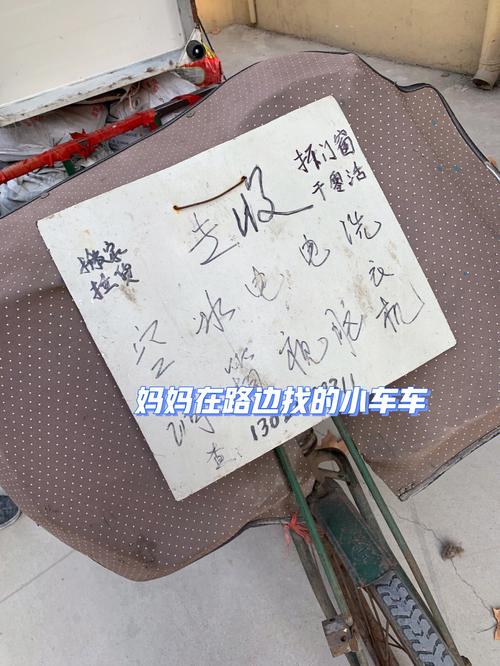 收
拆门窗
干零活
搬家
拉货
空调
冰箱
电视
电脑
洗衣机
妈妈在路边找的小车车